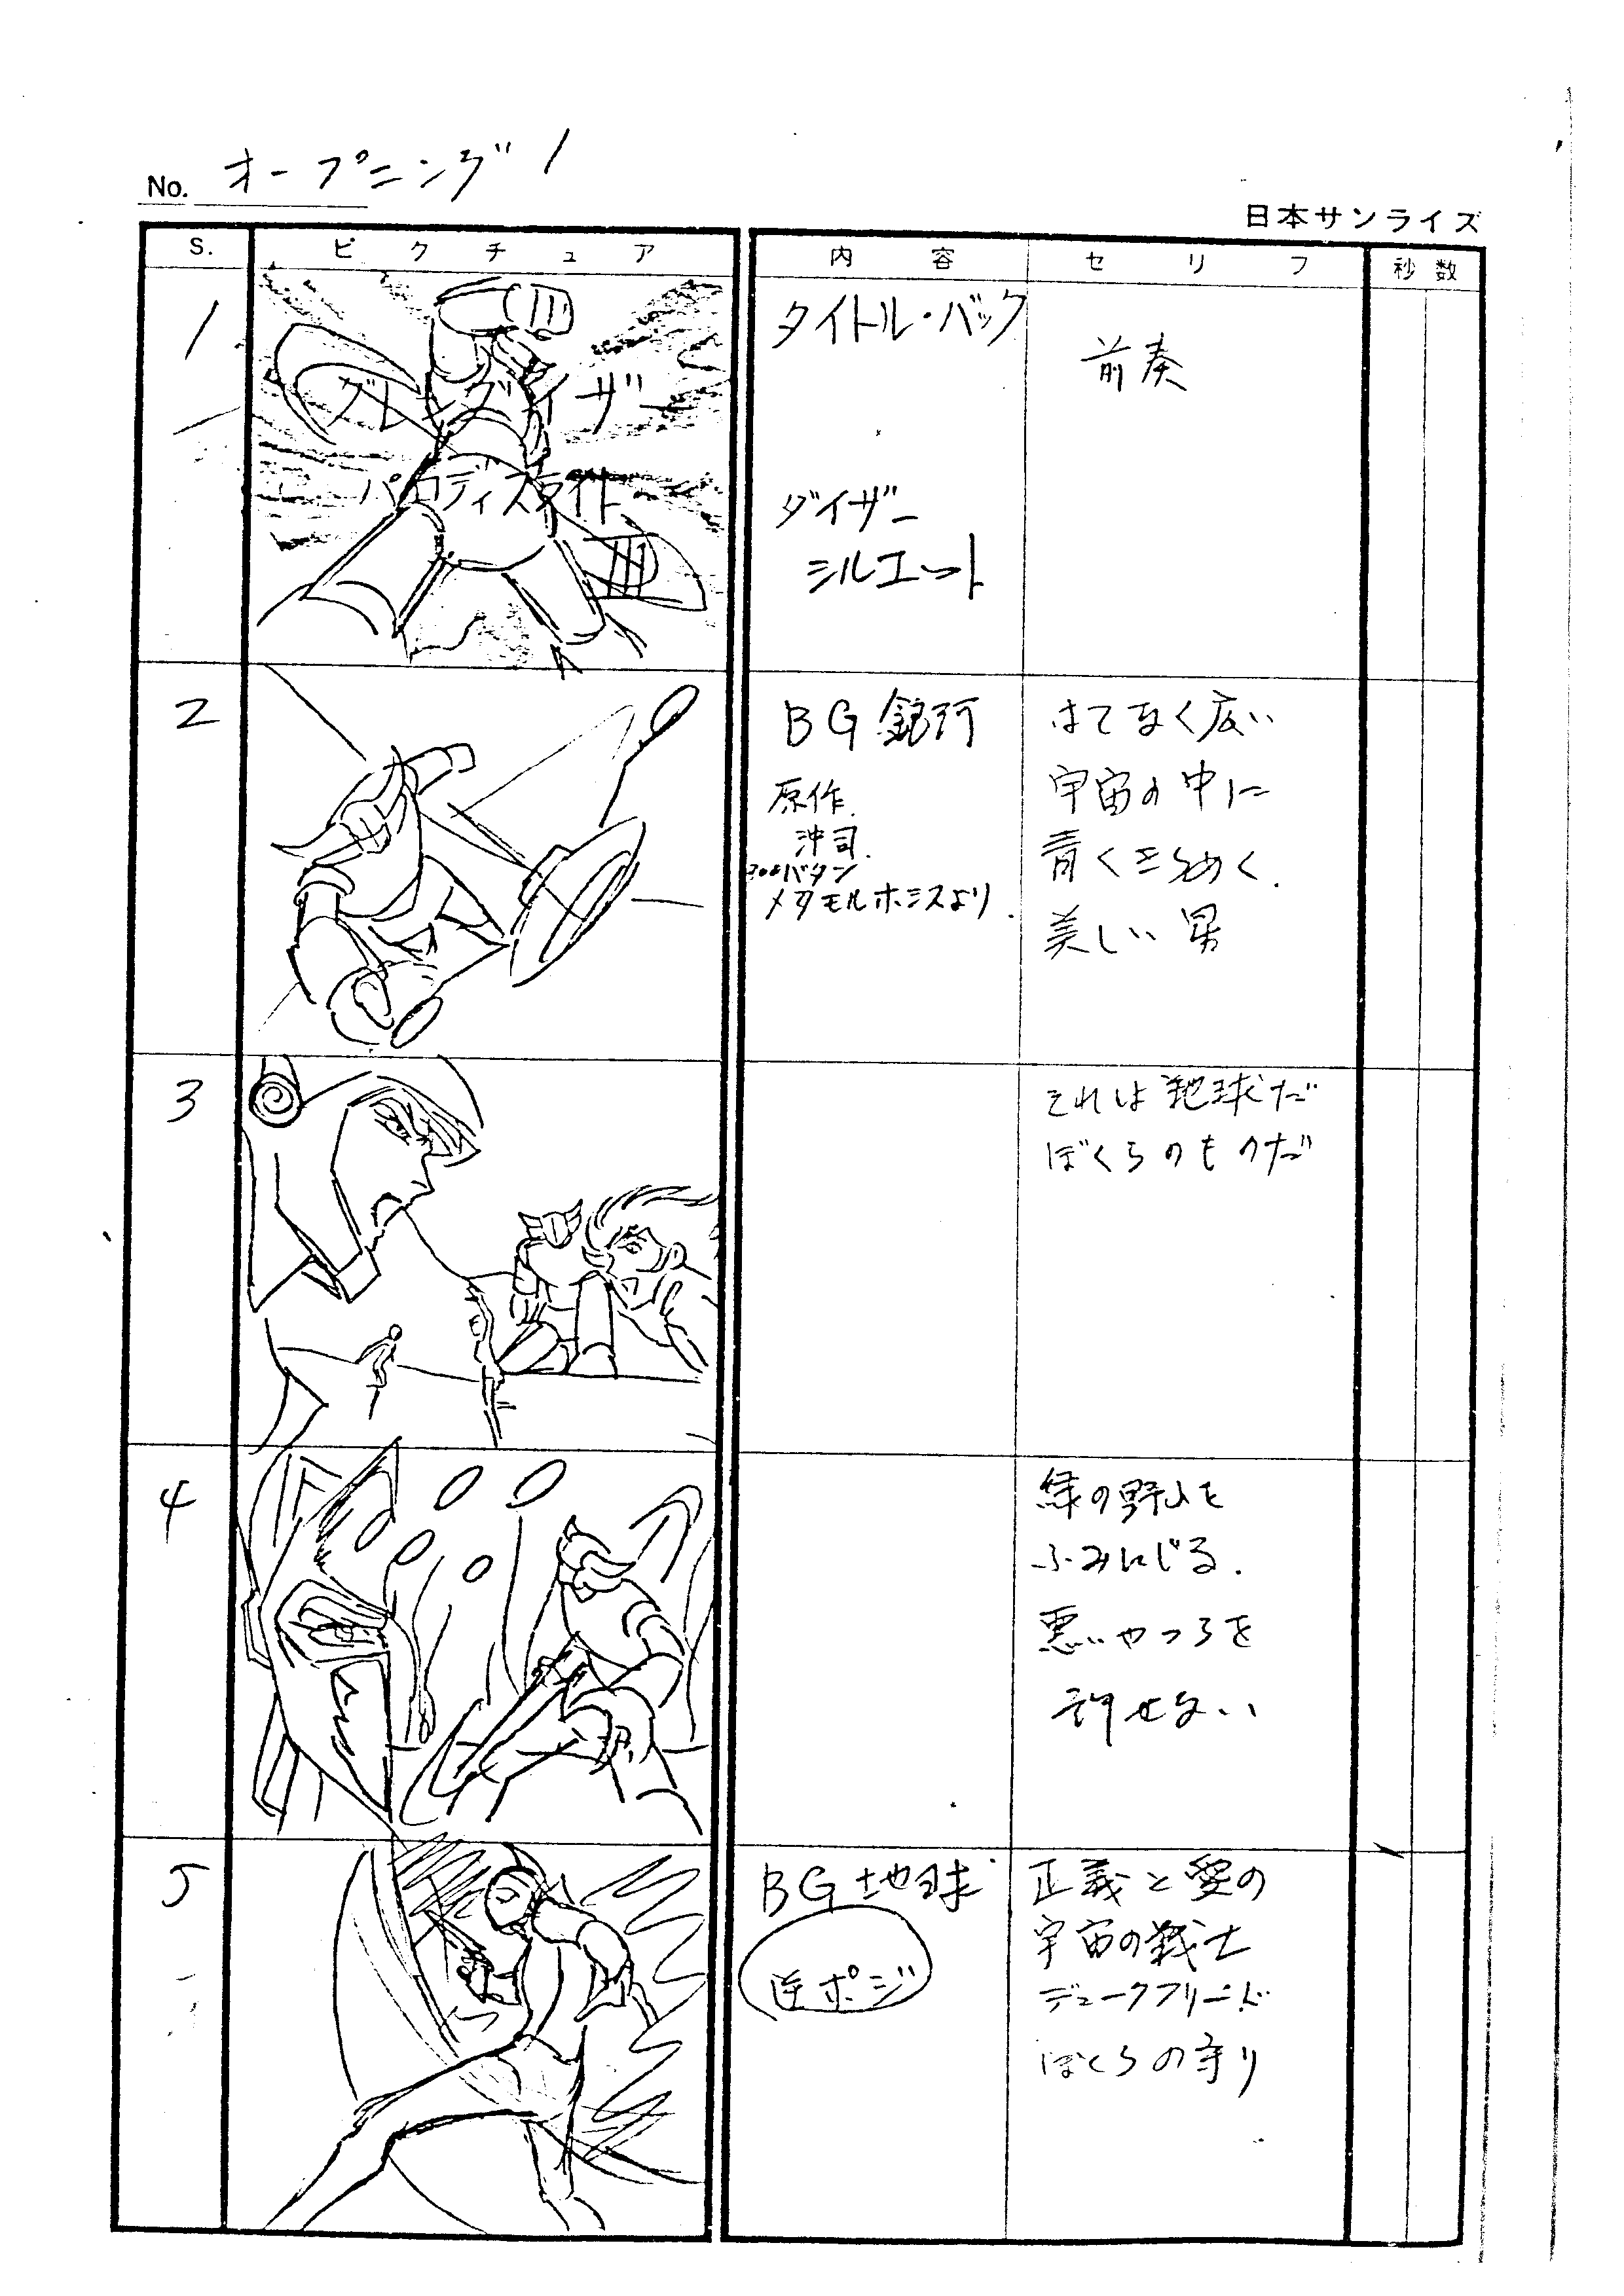 No. オープニング 1
日本サンライズ
S. ピクチュア 内容 セリフ 秒数
1
グレンダイザー
パロディスライド
タイトル・バック
ダイザー
シルエット
前奏
2
BG 銀河
原作
沖司
メタモルホシスより
はてなく広い
宇宙の中に
青くきらめく
美しい男
3
それは地球だ
ぼくらのものだ
4
緑の野山を
ふみにじる
悪いやつらを
許せない
5
BG 地球
逆ポジ
正義と愛の
宇宙の戦士
デュークフリード
ぼくらの守り